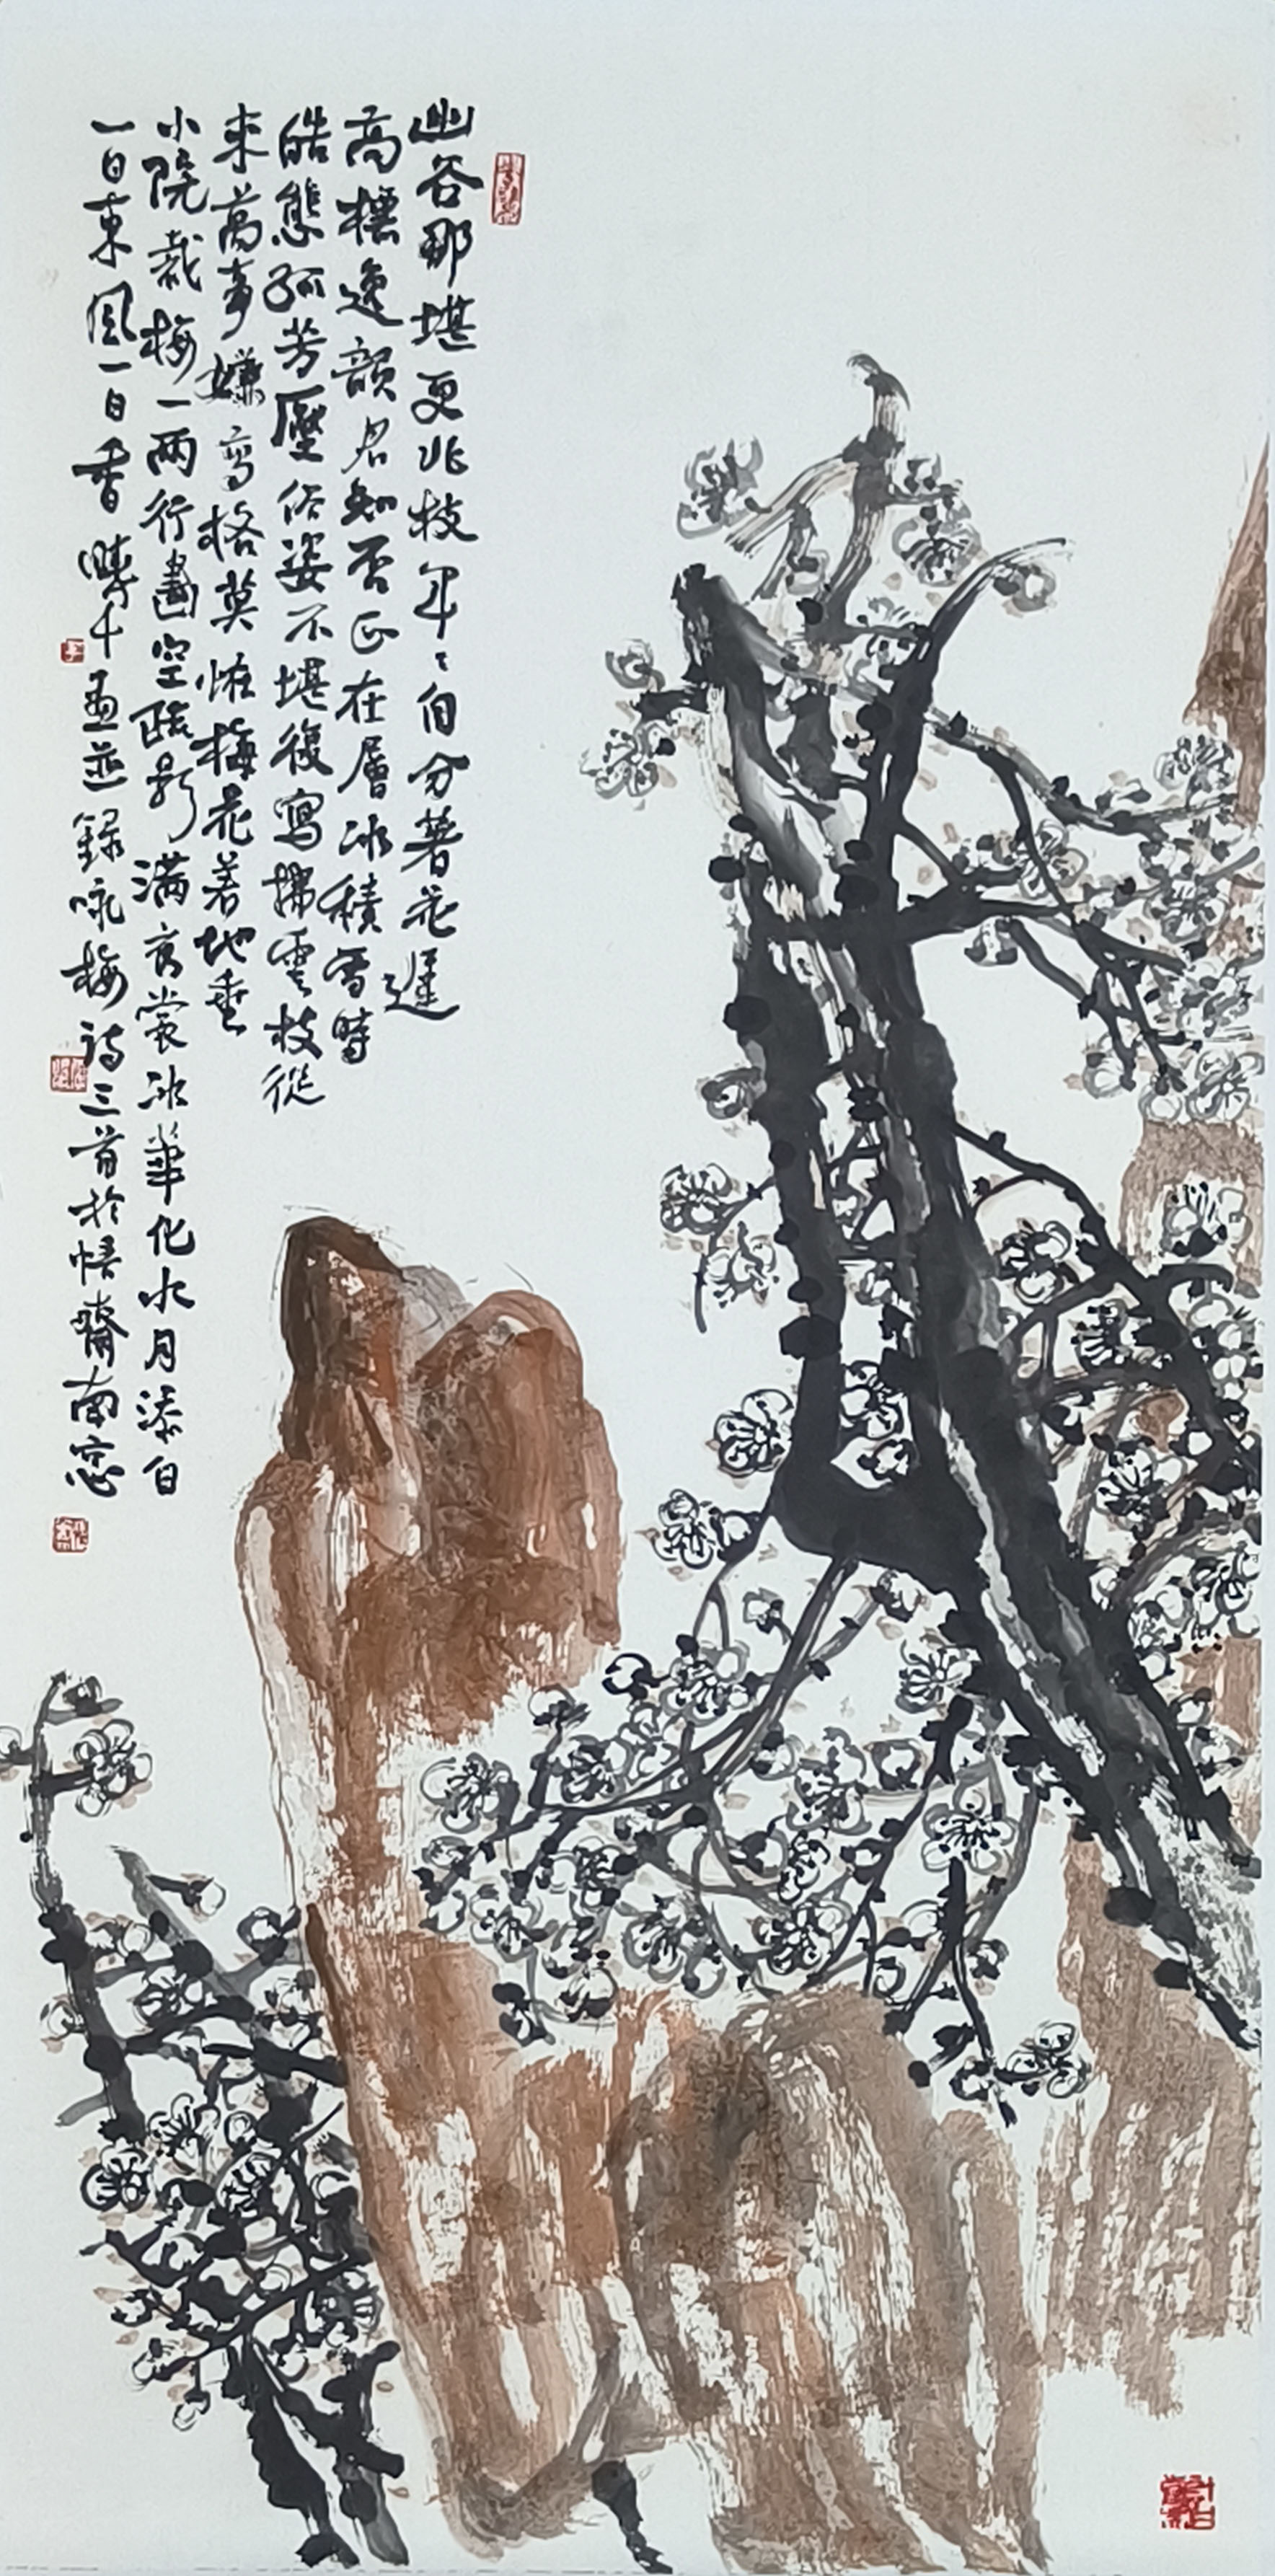 幽谷那堪更北枝年〻自分著花遲
高標逸韻君知否正在層冰積雪時
皓態孤芳壓俗姿不堪復寫拂雲枝從
來萬事嫌高格莫怪梅花著地垂
小院栽梅一兩行畫空疏影滿衣裳冰華化水月添白
一日東風一日香 千 並錄詠梅詩三首於悟齋南窓